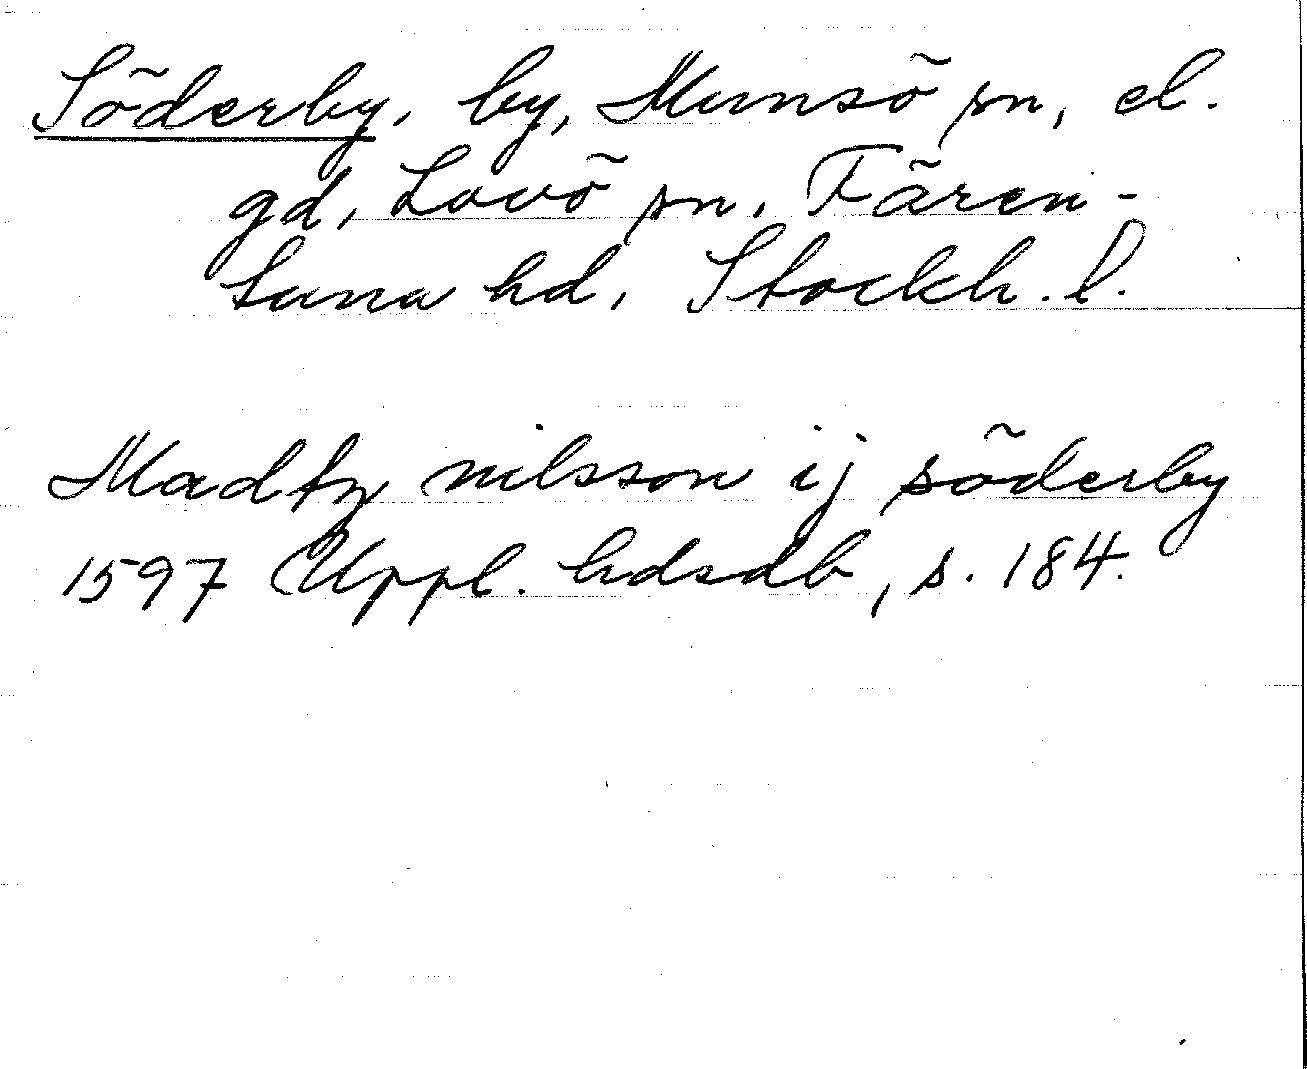 Söderby, by, Munsö sn, el.
gd, Lovö sn, Fären-
tuna hd, Stockh. l.
Madtz nilsson ij söderby
1597 Uppl. hdsdb, s. 184.